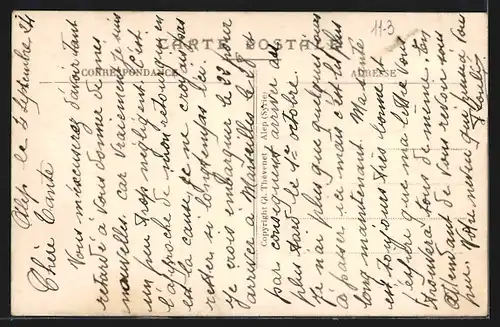 CARTE POSTALE
CORRESPONDANCE
ADRESSE
Copyright G. Thévenet Alep (Syrie)
11-3
Alep le 3 Septembre 24
Chère Tante
Vous m'excuserez d'avoir tant
retardé à vous donner de mes
nouvelles car vraiement je suis
un peu trop négligent. C'est
l'approche de mon retour qui en
est la cause, je ne croyais pas
rester si longtemps ici.
Je crois embarquer le 22 pour
arriver à Marseille le et
par conséquent arriver au
plus tard le 1er octobre.
Je n'ai plus que quelques jours
à passer ici mais c'est le plus
long maintenant. Ma santé
est toujours très bonne et
j'espère que ma lettre vous
trouvera tous de même. En
attendant de vous retourn
votre neveu qui